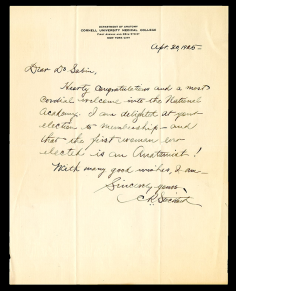 DEPARTMENT OF ANATOMY
CORNELL UNIVERSITY MEDICAL COLLEGE
FIRST AVENUE AND 28TH STREET
NEW YORK CITY
Apr. 30, 1925-
Dear Dr Sabin,
Hearty congratulations and a most
cordial welcome into the National
Academy. I am delighted at your
election to membership - and
that the first woman ever
elected is an Anatomist!
With many good wishes, I am
Sincerely yours,
C.R. Stockard